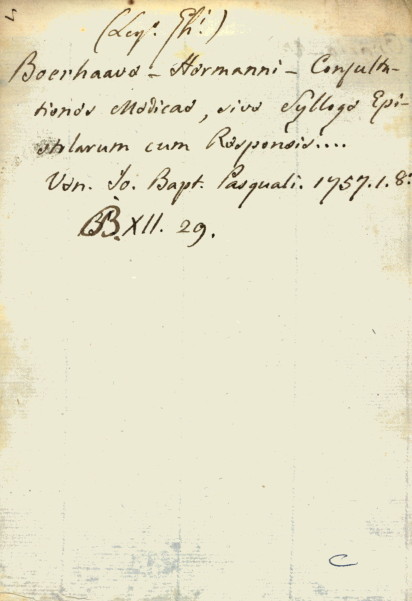 (Leg.º Ghi)
Boerhaave - Hermanni - Consulta-
tiones Medicae, sive Sylloge Epi-
stolarum cum Responsis....
Ven. Io. Bapt. Pasquali. 1757. 1. 8.º
BB. XII. 29.
C